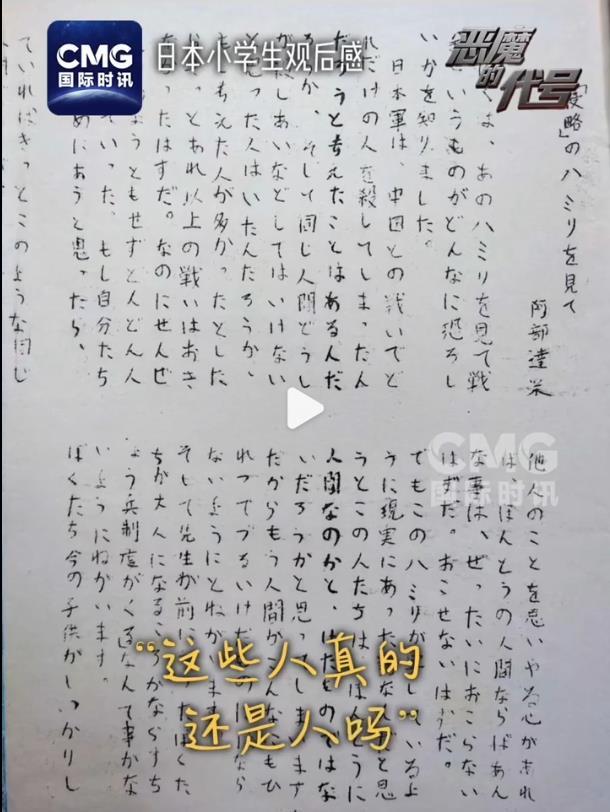 CMG
国际时讯
日本小学生观后感
恶魔
的
代号
略」のハミリを見て
阿部達栄
くは、あのハミリを見て戦
いうものがどんなに恐ろし
いかを知りました。
日本軍は、中国との戦いでど
れだけの人を殺してしまったん
だろうと考えたことはあるんだ
ろうか、そして同じ人間どうし
がしあいなどしてはいけない
と思った人はいたんだろうか、
考えた人が多かったとした
とあれ以上の戦いはおき
ったはずだ。なのにせんぜ
ようともせずどんどん人
いった、もし自分たち
めにあうと思ったら、
ていればきっとこのような同じ
他人のことを思いやる心があれ
ば、ほんとうの人間ならばあん
な事は、ぜったいにおこらない
はずだ。おこせないはずだ。
でもこのハミリが
しているよ
うに現実にあった
と思
うとこの人たちは
ほんとうに
人間なのかと、けだものではな
いだろうかと思ってしまいます
だからもう人間が
もひ
れつでずるいけだ
なら
ないようにとねが
ます
そして先生が前に
ったぼくた
ちが大人になるころがならすち
ょう兵制度がくるなんて事がな
いようにねがいます。
ぼくたち今の子供がしっかりし
CMG
国际时讯
“这些人真的
还是人吗”